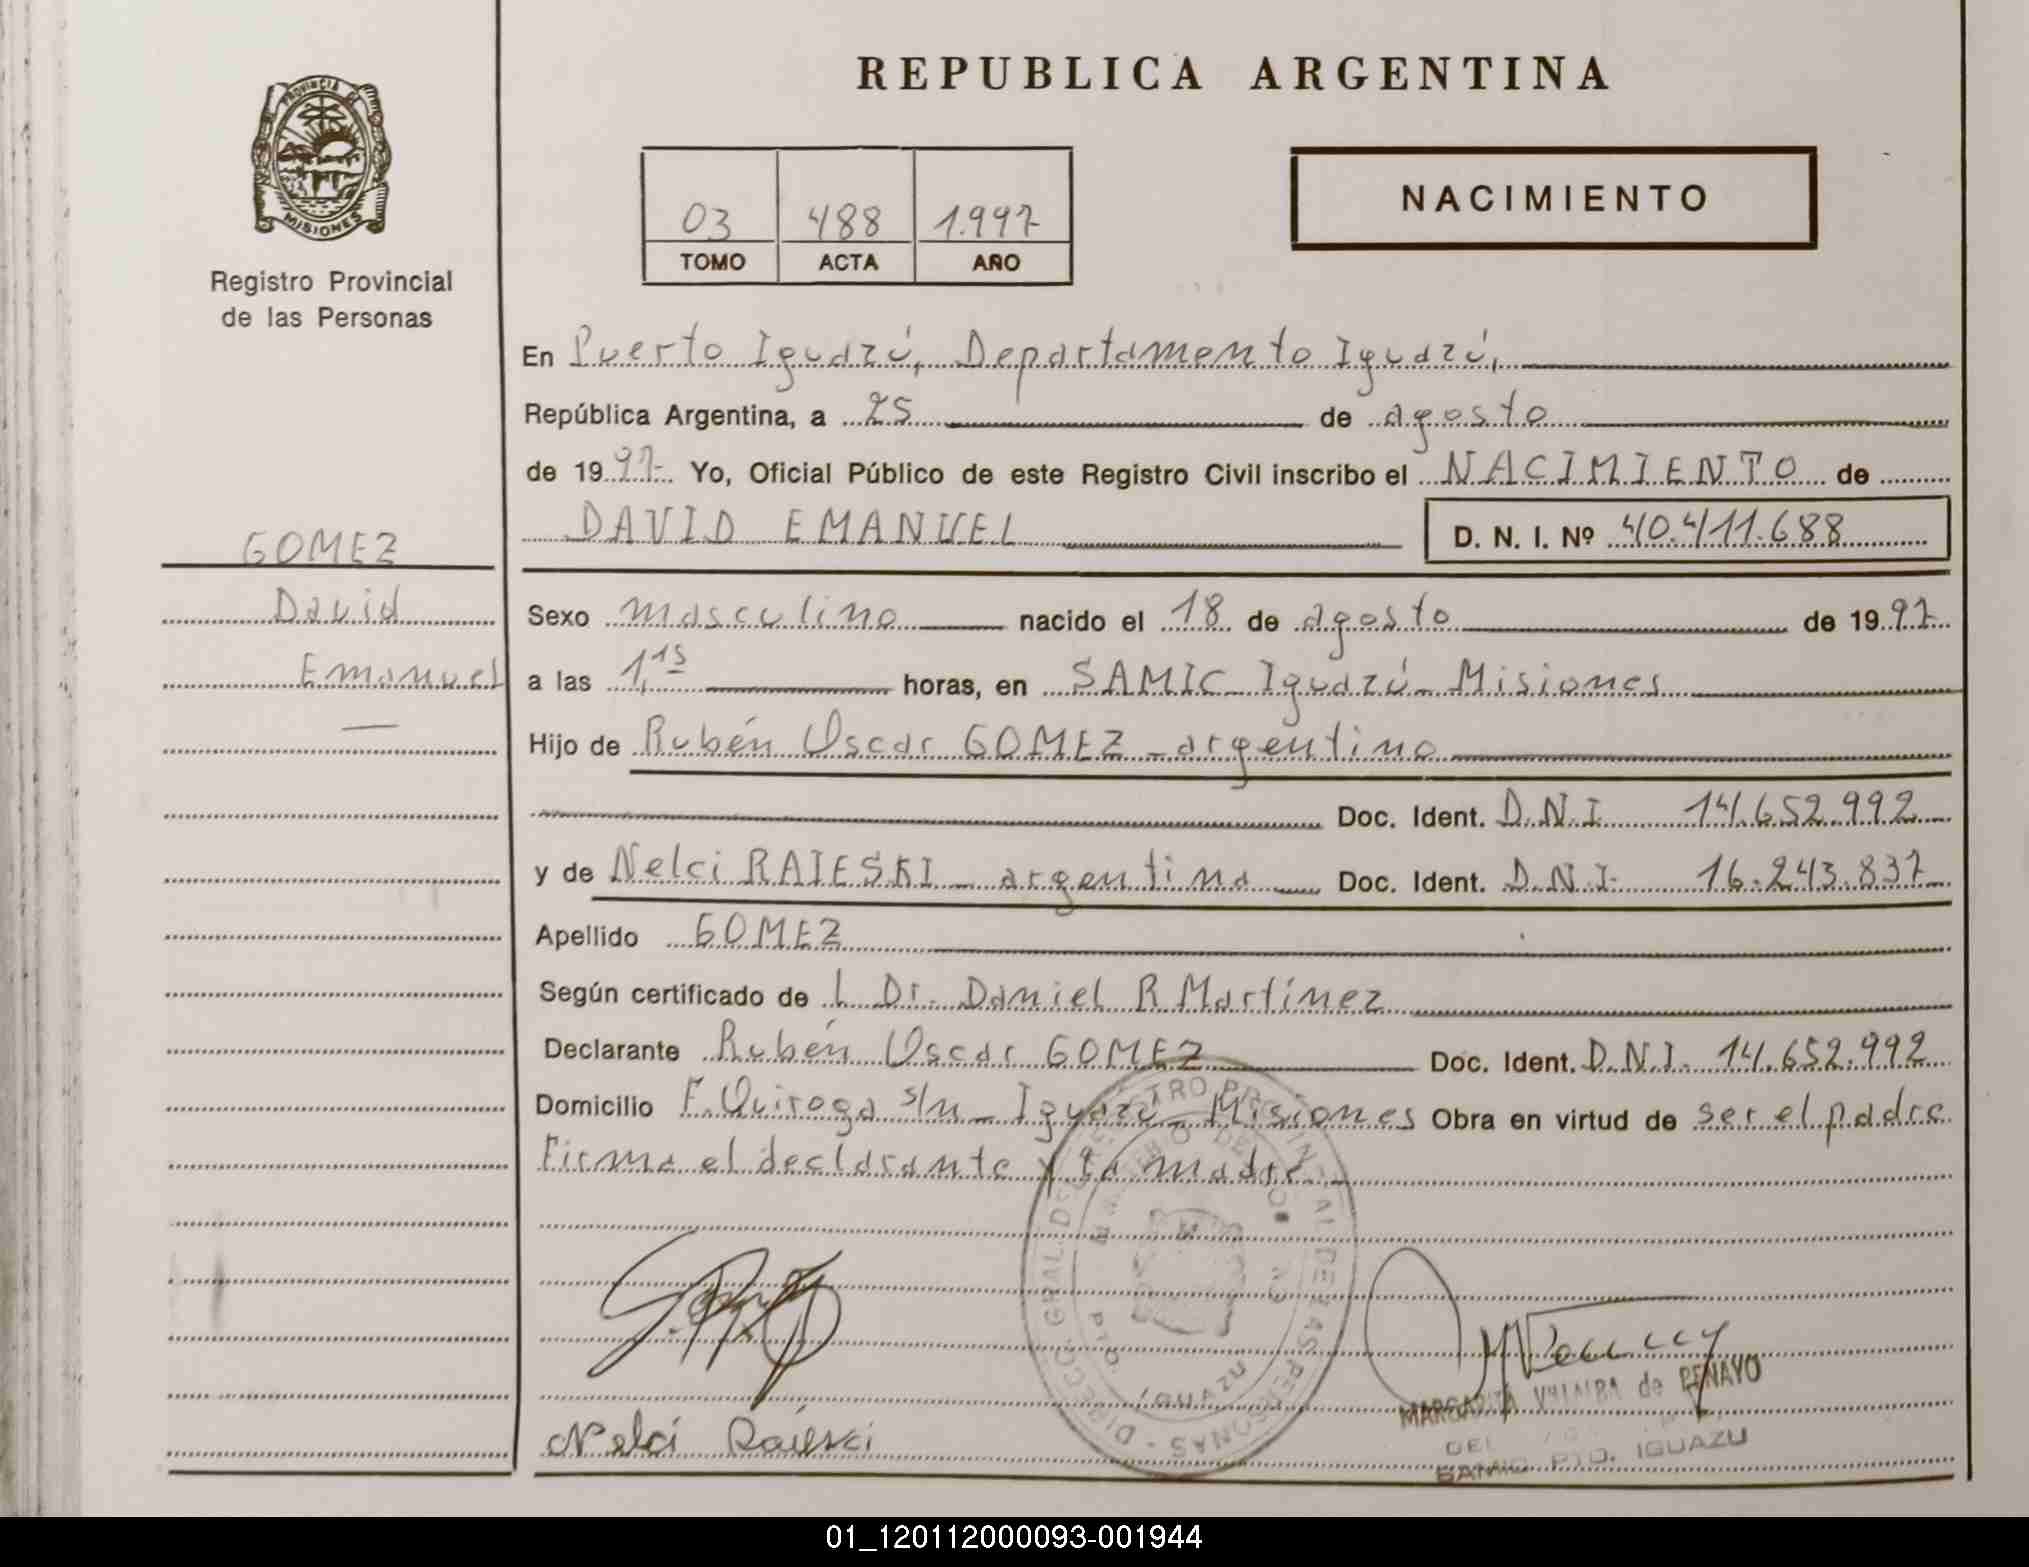 PROVINCIA DE
MISIONES
Registro Provincial
de las Personas
GOMEZ
David
Emanuel
REPUBLICA ARGENTINA
03 488 1.997
TOMO ACTA AÑO
NACIMIENTO
En Puerto Iguazú, Departamento Iguazú,
República Argentina, a 25 de agosto
de 1997 Yo, Oficial Público de este Registro Civil inscribo el NACIMIENTO de
DAVID EMANUEL D. N. I. Nº 40.411.688
Sexo masculino nacido el 18 de agosto de 1997
a las 1,15 horas, en SAMIC Iguazú - Misiones
Hijo de Rubén Oscar GOMEZ - argentino
Doc. Ident. D.N.I. 14.652.992
y de Nelci RAIESKI - argentina Doc. Ident. D.N.I. 16.243.837
Apellido GOMEZ
Según certificado de l Dr. Daniel R Martínez
Declarante Rubén Oscar GOMEZ Doc. Ident. D.N.I. 14.652.992
Domicilio F. Quiroga s/n - Iguazú - Misiones Obra en virtud de ser el padre
Firma el declarante y la madre.-
DIRECC. GRAL. DEL REGISTRO PROVINCIAL DE LAS PERSONAS
MINISTERIO DE
PTO. IGUAZU
Nelci Raieski
MARGARITA VILLALBA de PENAYO
SAMIC PTO. IGUAZU
01_120112000093-001944